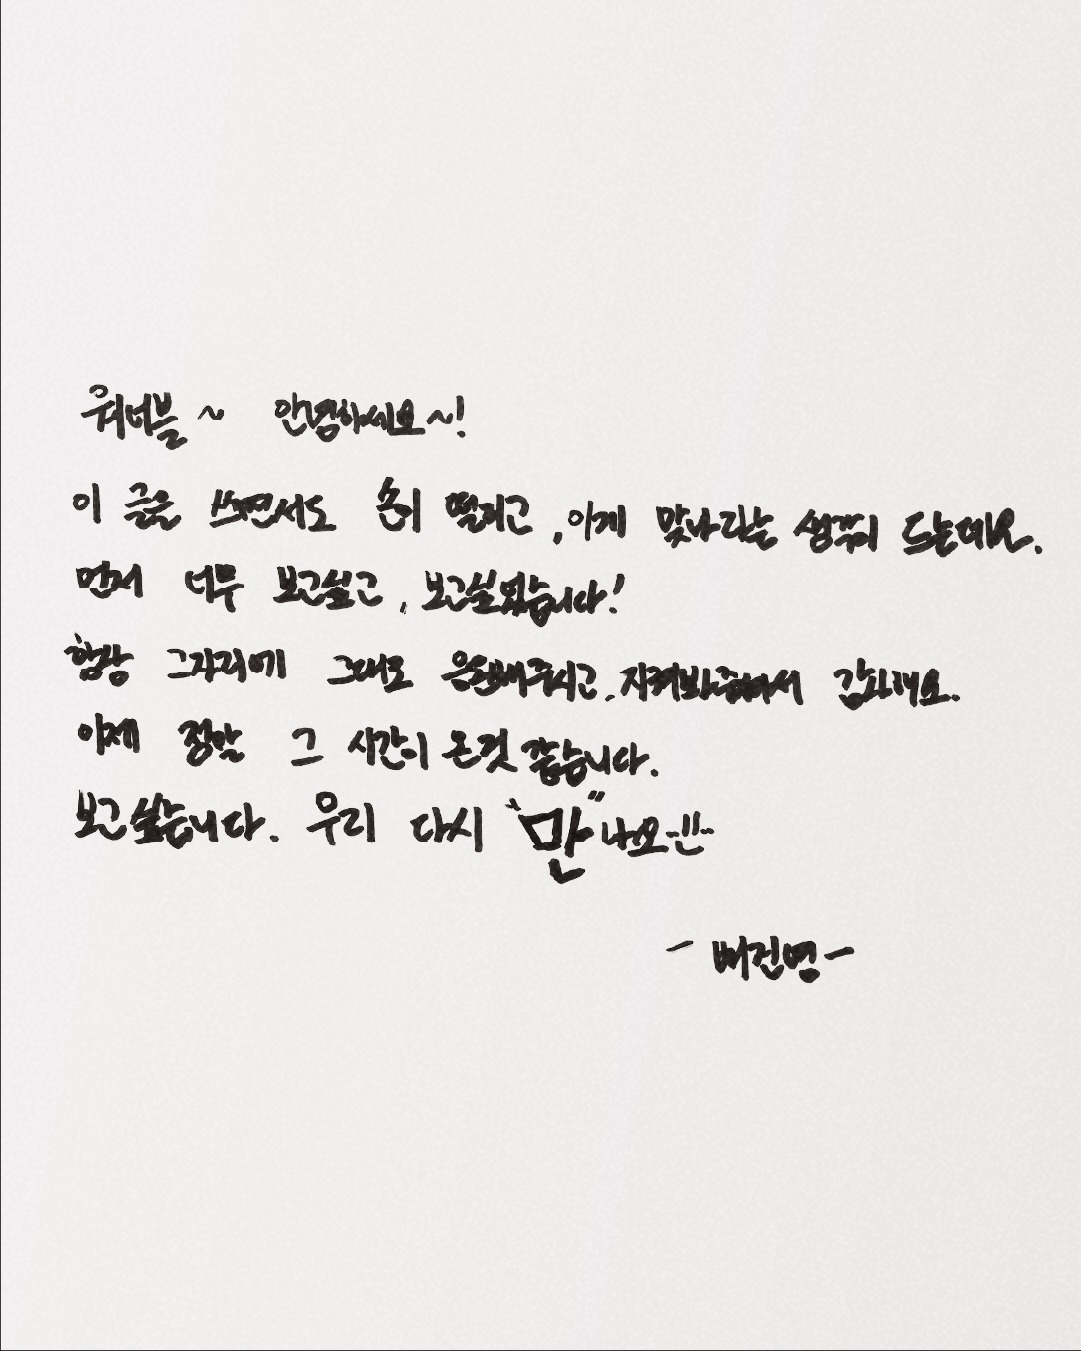 워너블~ 안녕하세요~!
이 글을 쓰면서도 손이 떨리고, 이게 맞나 라는 생각이 드는데요.
먼저 너무 보고싶고, 보고싶었습니다!
항상 그자리에 그대로 응원해주시고, 지켜봐주셔서 감사해요.
이제 정말 그 시간이 온것 같습니다.
보고싶습니다. 우리 다시 "만"나요!!
- 배진영 -